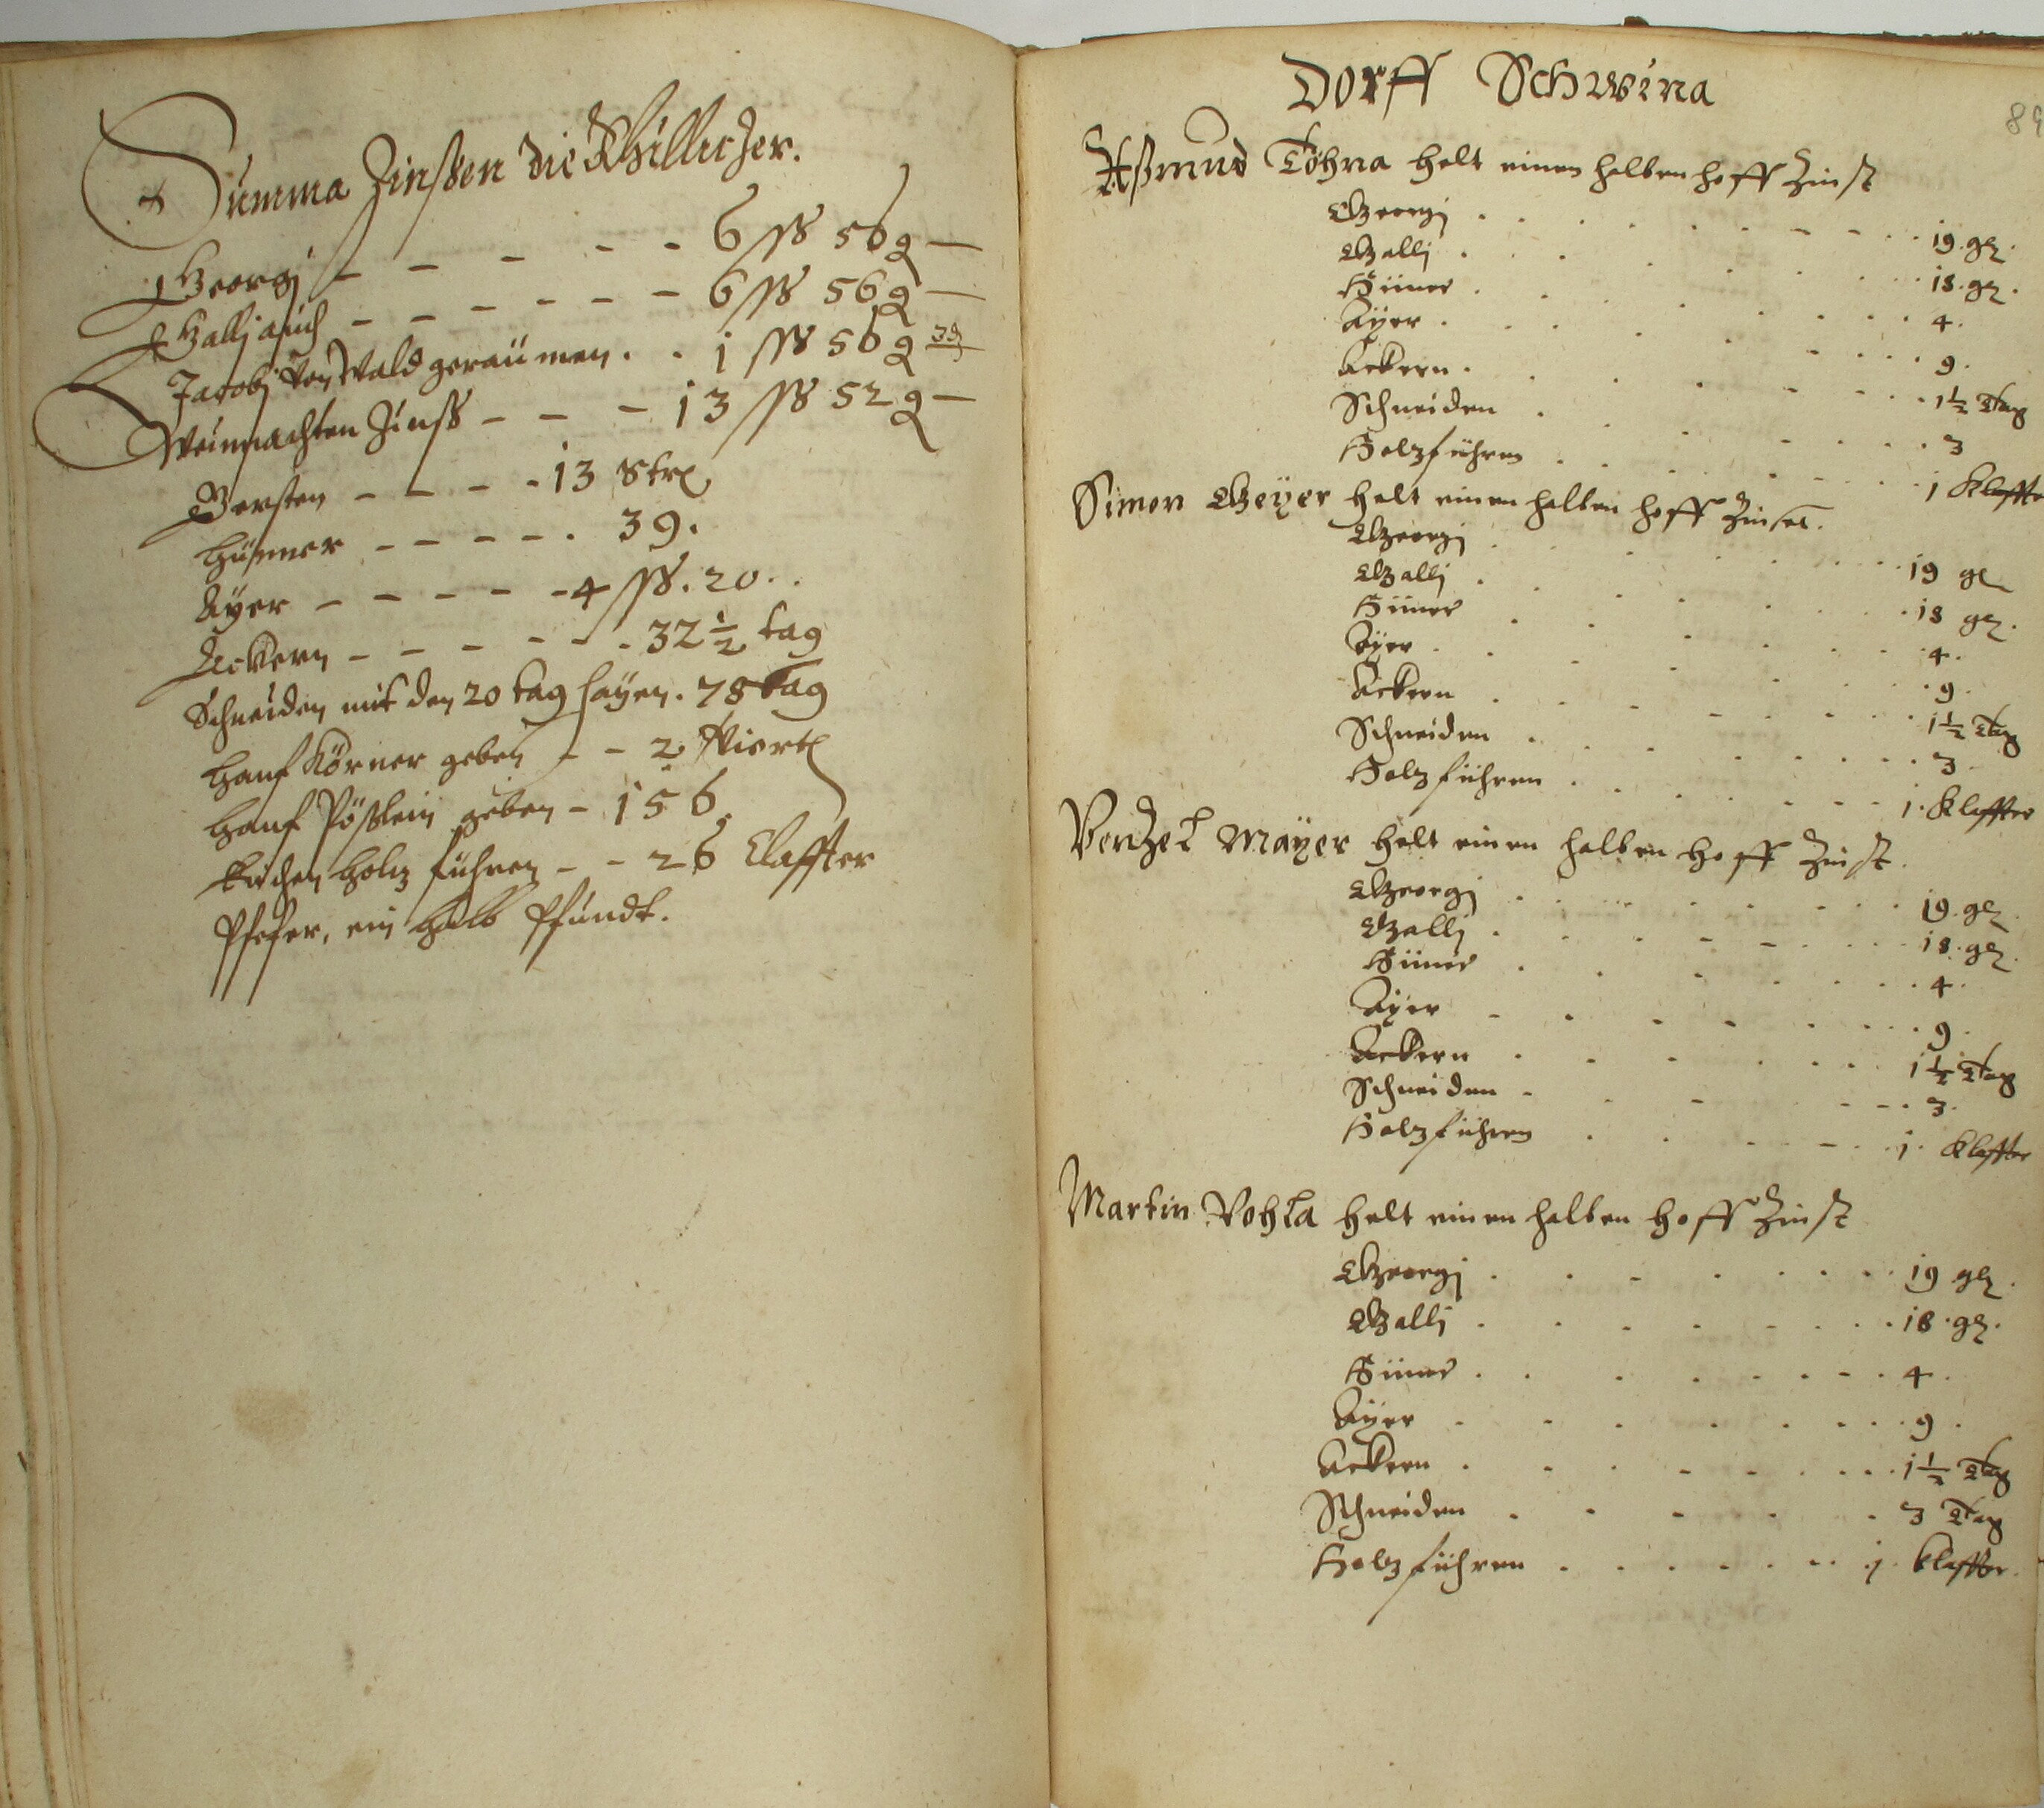 Summa Zinßen die Khillicher.
Georgj – – – – – 6 ßß 56 g –
Gallj auch – – – – – – 6 ßß 56 g –
Jacobj von Waldgeräumen . . 1 ßß 56 g 3 ₰
Weinnachten Zinß – – – 13 ßß 52 g –
Gersten – – – – 13 Str
Hüener – – – – – . 39.
Ayer – – – – – 4 ßß. 20 . .
Ackern – – – – – – 32 1/2 tag
Schneiden mit den 20 tag hayen. 78 tag
Hanf Körner geben – – 2 Viertl
Hanf Pößlein geben – 156
Kuchen holtz führen – – 26 Claffter
Pfefer, ein halb Pfundt.
Dorff Schwina
89
Aßmus Töhna helt einen halben hoff Zinst
Georgj . . . . 19. gr.
Gallj . . . . 18. gr.
Hüner . . . . 4.
Ayer . . . . 9.
Ackern . . . . 1 1/2 Tag
Schneiden . . . . 3
Holzführen . . . . 1 Klaffter
Simon Geyer helt einen halben hoff Zinset.
Georgj . . . . 19 gr
Gallj . . . . 18 gr.
Hüner . . . . 4.
Ayer . . . . 9.
Ackern . . . . 1 1/2 Tag
Schneiden . . . . 3
Holzführen . . . . 1. Klaffter
Venzel Mayer helt einen halben hoff Zinst.
Georgj . . . . 19. gr
Gallj . . . . 18. gr.
Hüner . . . . 4.
Ayer . . . . 9.
Ackern . . . . 1 1/2 Tag
Schneiden . . . . 3.
Holzführen . . . . 1. Klaffter
Martin Vohla helt einen halben hoff Zinst
Georgj . . . . 19 gr.
Gallj . . . . 18. gr.
Hüner . . . . 4.
Ayer . . . . 9.
Ackern . . . . 1 1/2 Tag
Schneiden . . . . 3 Tag
Holzführen . . . . 1. Klaffter.